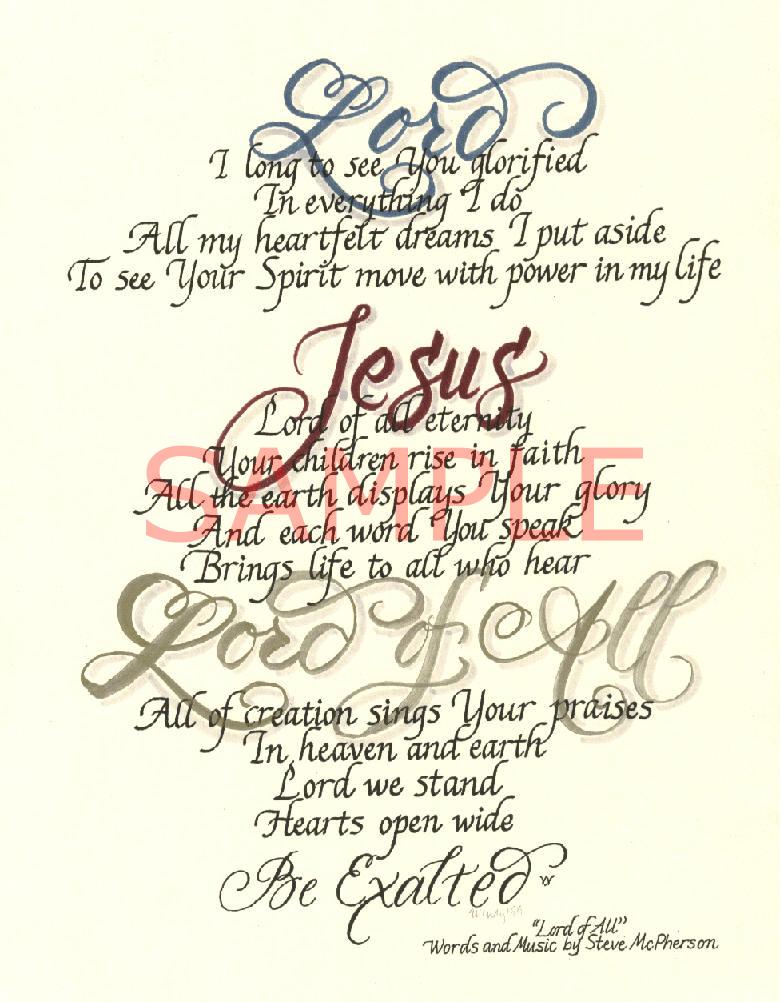 Lord
I long to see You glorified
In everything I do
All my heartfelt dreams I put aside
To see Your Spirit move with power in my life
Jesus
Lord of all eternity
Your children rise in faith
All the earth displays Your glory
SAMPLE
And each word You speak
Brings life to all who hear
Lord of All
All of creation sings Your praises
In heaven and earth
Lord we stand
Hearts open wide
Be Exalted
"Lord of All"
Words and Music by Steve McPherson